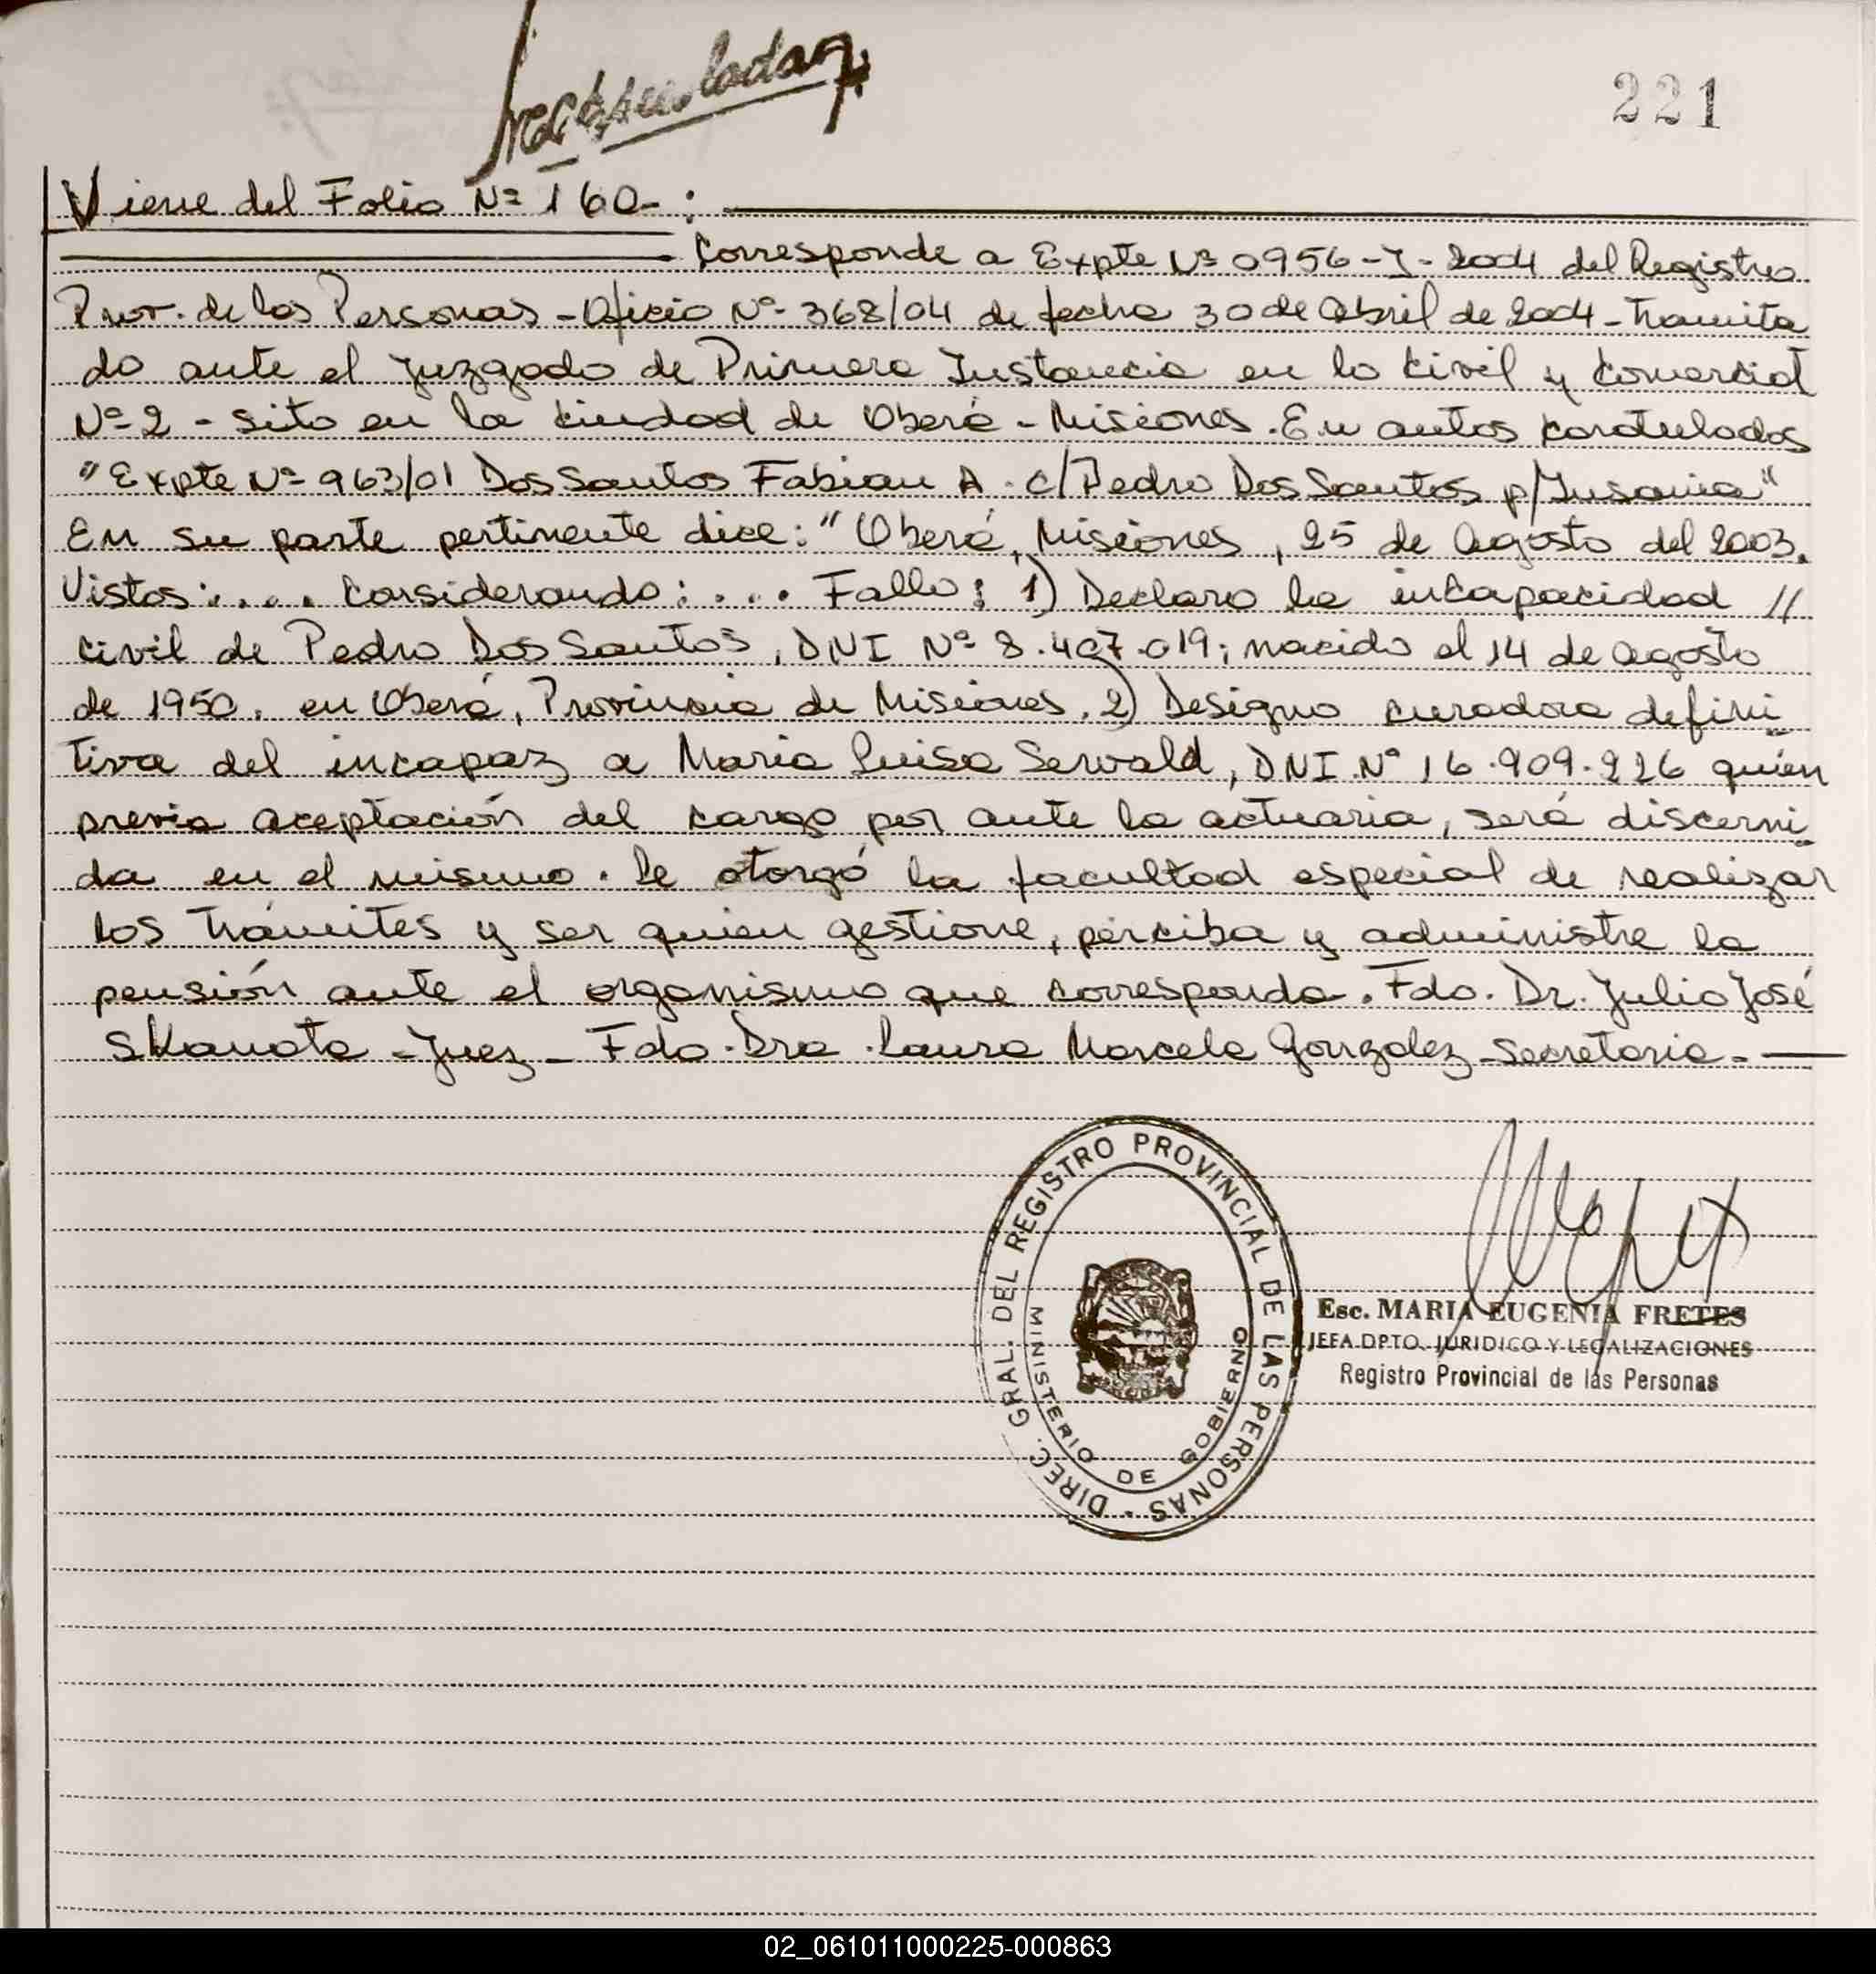 221
Viene del Folio Nº 160- :
Corresponde a Expte Nº 0956-J-2004 del Registro
Prov. de las Personas - Oficio Nº 368/04 de fecha 30 de Abril de 2004 - Tramita
do ante el Juzgado de Primera Instancia en lo Civil y Comercial
Nº 2 - sito en la Ciudad de Oberá - Misiones. En autos Caratulados
"Expte Nº 963/01 Dos Santos Fabian A. c/Pedro Dos Santos p/Insania"
En su parte pertinente dice: "Oberá, Misiones, 25 de Agosto del 2003.
Vistos: .... Considerando: ... Fallo: 1) Declaro la incapacidad //
Civil de Pedro Dos Santos, DNI Nº 8.407.019; nacido el 14 de agosto
de 1950. en Oberá, Provincia de Misiones. 2) Designo curadora defini
tiva del incapaz a Maria Luisa Sewald, DNI Nº 16.909.226 quién
previa aceptación del cargo por ante la actuaria, será discerni
da en el mismo. Le otorgó la facultad especial de realizar
los trámites y ser quien gestione, perciba y administre la
pensión ante el organismo que corresponda. Fdo. Dr. Julio José
Skanata - Juez - Fdo. Dra. Laura Marcela Gonzalez - Secretaria.-
DIREC. GRAL. DEL REGISTRO PROVINCIAL DE LAS PERSONAS -
MINISTERIO DE GOBIERNO
Esc. MARIA EUGENIA FRETES
JEFA DPTO. JURIDICO Y LEGALIZACIONES
Registro Provincial de las Personas
02_061011000225-000863